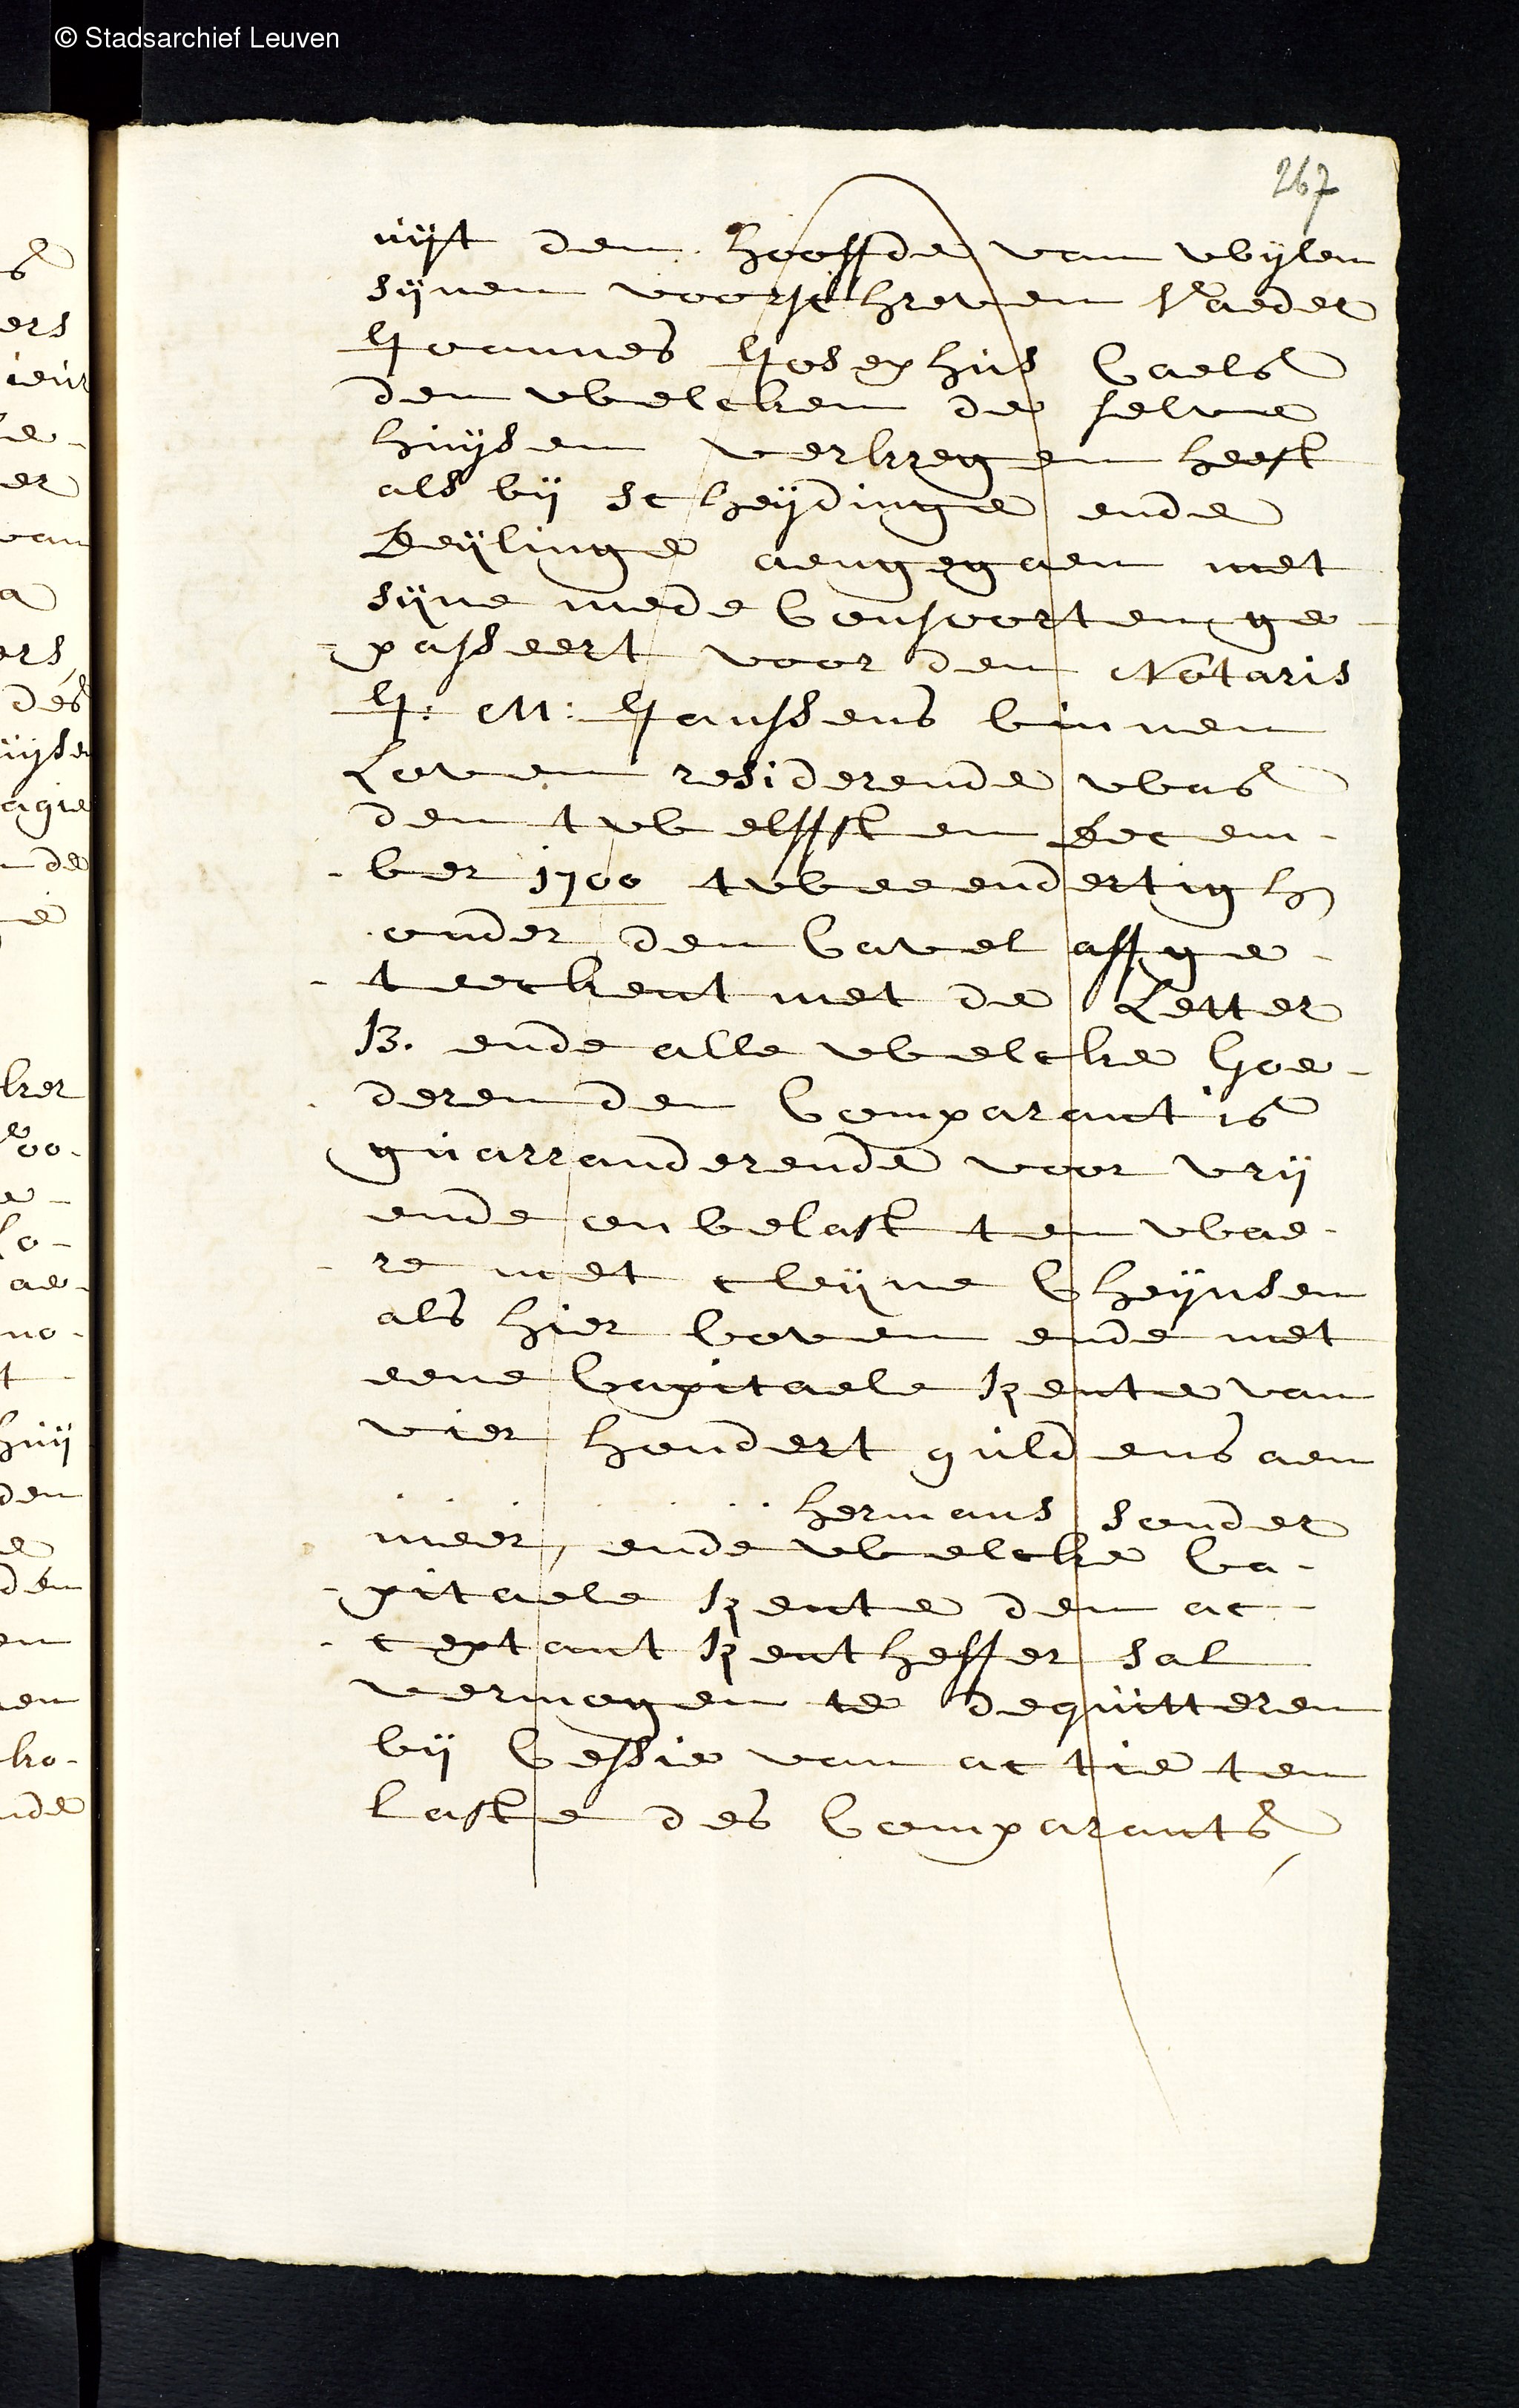 © Stadsarchief Leuven
267
uijt den hooffde van wijlen
sijnen voorschreven Vaeder
Joannes Josephus Caels
den welcken de selve
huijsen verkregen heeft
als bij scheijdinge ende
Deijlinge aengegaen met
sijne mede Consoorten ge-
passeert voor den Notaris
J: M: Janssens binnen
Loven residerende was
den twelffsten Decem-
-ber 1700 tweeendertigh
onder den Cavel affge-
-teeckent met de Letter
B. ende alle welcke goe-
deren den Comparant is
guarranderende voor vrij
ende onbelast ten wae-
-re met cleijne Cheijnsen
als hier boven ende met
eene Capitaele Rente van
vier hondert guldens aen
. . . . . . . hermans sonder
meer, ende welcke Ca-
-pitaele Rente den ac-
-ceptant Rentheffer sal
vermogen te dequitteren
bij Cessie van actie ten
laste des Comparants